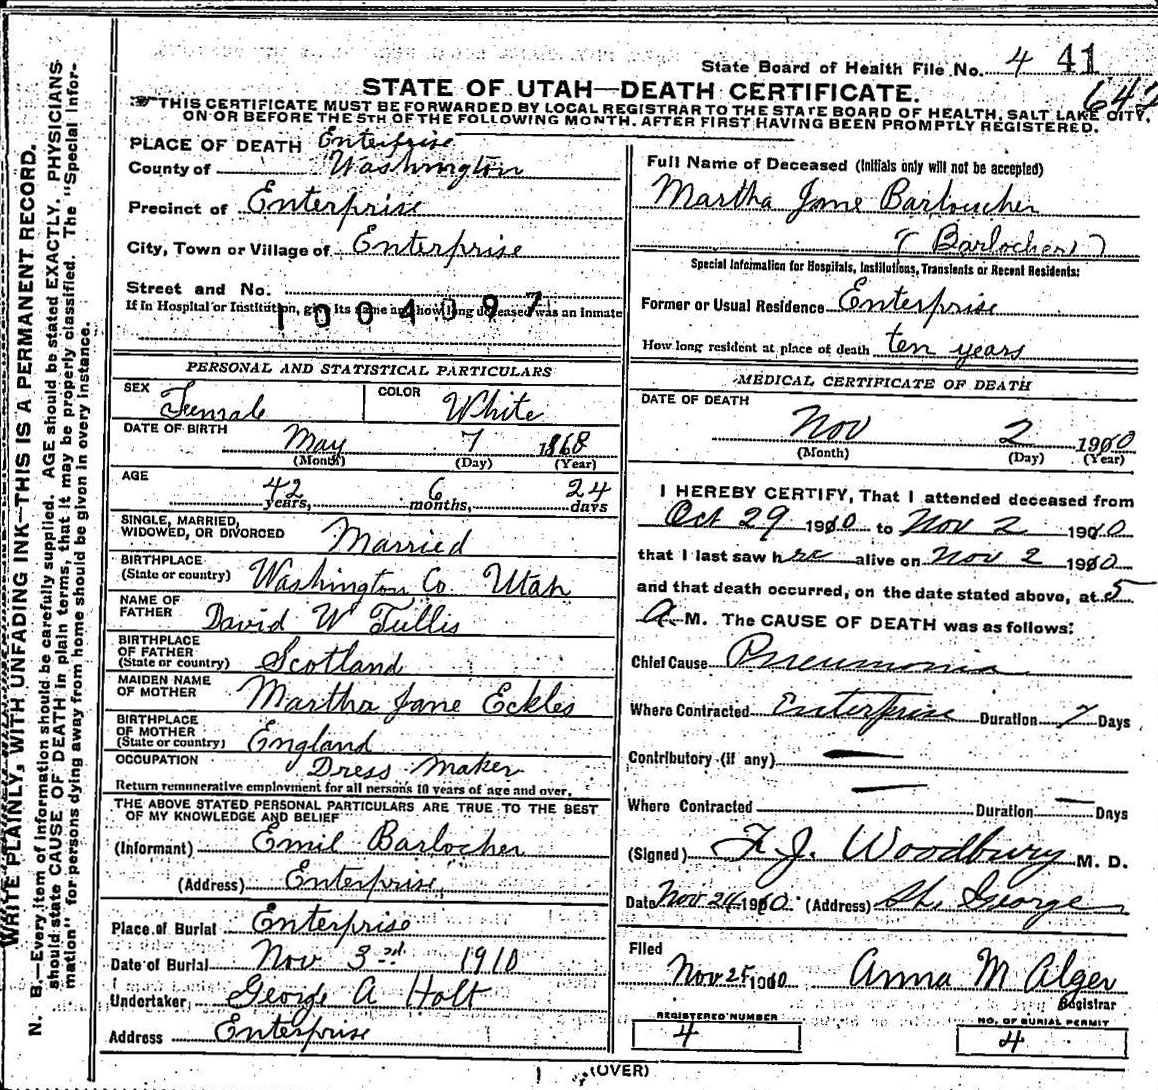 State Board of Health File No. 4 41
642
STATE OF UTAH—DEATH CERTIFICATE.
THIS CERTIFICATE MUST BE FORWARDED BY LOCAL REGISTRAR TO THE STATE BOARD OF HEALTH, SALT LAKE CITY,
ON OR BEFORE THE 5TH OF THE FOLLOWING MONTH. AFTER FIRST HAVING BEEN PROMPTLY REGISTERED.
WRITE PLAINLY, WITH UNFADING INK—THIS IS A PERMANENT RECORD.
N. B.—Every item of information should be carefully supplied. AGE should be stated EXACTLY. PHYSICIANS
should state CAUSE OF DEATH in plain terms, that it may be properly classified. The "Special Infor-
mation" for persons dying away from home should be given in every instance.
PLACE OF DEATH Enterprise
County of Washington
Precinct of Enterprise
City, Town or Village of Enterprise
Street and No.
If in Hospital or Institution, give its name and how long deceased was an inmate
1004097
PERSONAL AND STATISTICAL PARTICULARS
SEX Female COLOR White
DATE OF BIRTH May 7 1868
(Month) (Day) (Year)
AGE 42 years, 6 months, 24 days
SINGLE, MARRIED,
WIDOWED, OR DIVORCED Married
BIRTHPLACE
(State or country) Washington Co. Utah
NAME OF
FATHER David W Tullis
BIRTHPLACE
OF FATHER
(State or country) Scotland
MAIDEN NAME
OF MOTHER Martha Jane Eckles
BIRTHPLACE
OF MOTHER
(State or country) England
OCCUPATION Dress Maker
Return remunerative employment for all persons 10 years of age and over.
THE ABOVE STATED PERSONAL PARTICULARS ARE TRUE TO THE BEST
OF MY KNOWLEDGE AND BELIEF
(Informant) Emil Barlocher
(Address) Enterprise
Place of Burial Enterprise
Date of Burial Nov 3rd 1910
Undertaker George A Holt
Address Enterprise
Full Name of Deceased (Initials only will not be accepted)
Martha Jane Barloucher
(Barlocher)
Special Information for Hospitals, Institutions, Transients or Recent Residents:
Former or Usual Residence Enterprise
How long resident at place of death ten years
MEDICAL CERTIFICATE OF DEATH
DATE OF DEATH
Nov 2 1910
(Month) (Day) (Year)
I HEREBY CERTIFY, That I attended deceased from
Oct 29 1910 to Nov 2 1910
that I last saw her alive on Nov 2 1910
and that death occurred, on the date stated above, at 5
A. M. The CAUSE OF DEATH was as follows:
Chief Cause Pneumonia
Where Contracted Enterprise Duration 7 Days
Contributory (if any) —
Where Contracted — Duration — Days
(Signed) F. J. Woodbury M. D.
Date Nov 24 1910 (Address) St. George
Filed
Nov 25 1910 Anna M Alger
Registrar
REGISTERED NUMBER
4
NO. OF BURIAL PERMIT
4
(OVER)